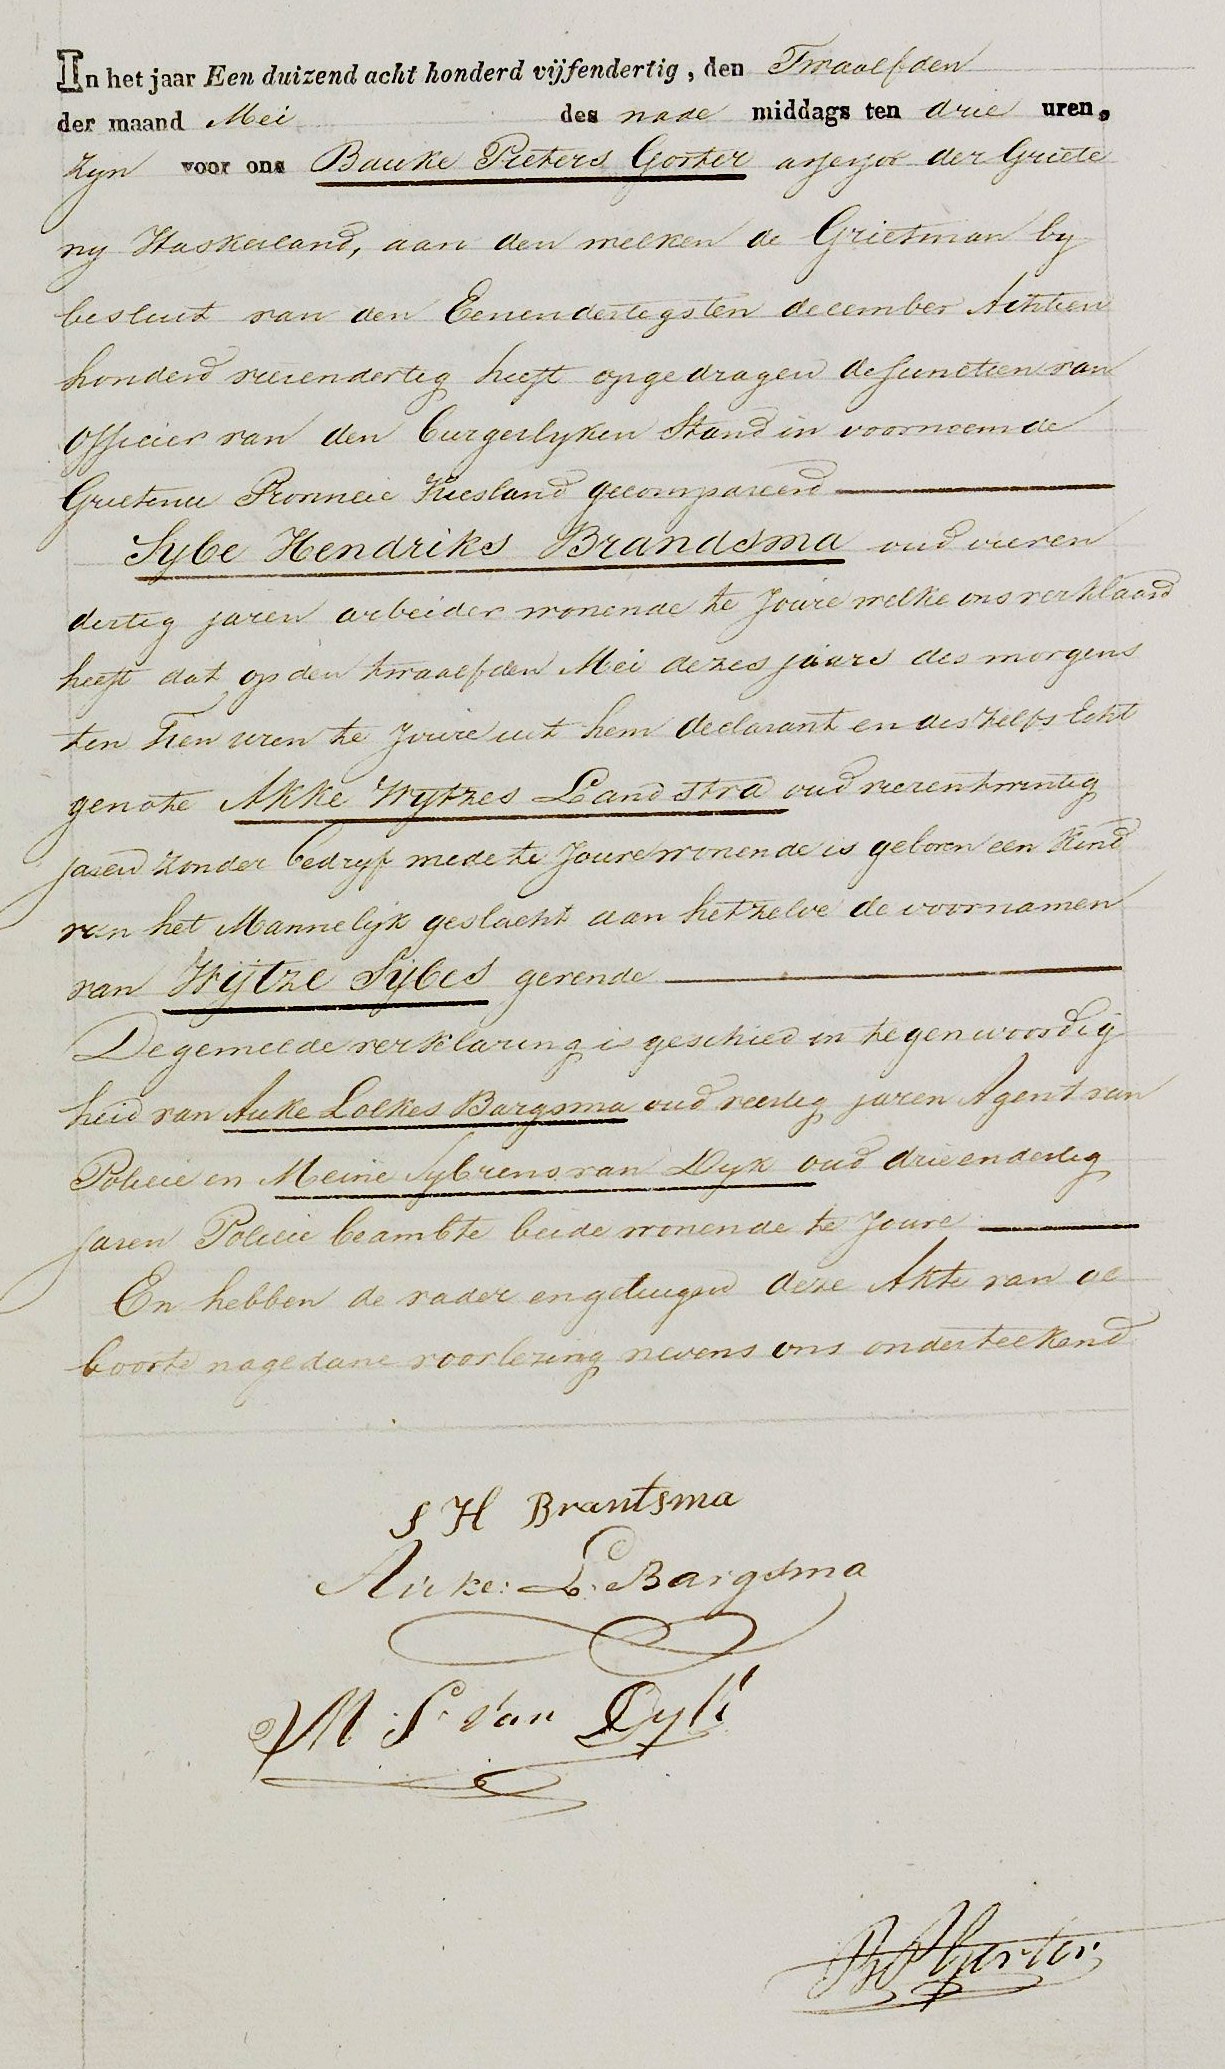 In het jaar Een duizend acht honderd vijfendertig, den Twaalfden
der maand Mei des nade middags ten drie uren,
zyn voor ons Bauke Pieters Gorter assessor der Griete
ny Haskerland, aan den welken de Grietman by
besluit van den Eenendertigsten december Achtien
honderd vierendertig heeft opgedragen de functien van
Officier van den burgerlyken Stand in voornoemde
Grietenie Provincie Friesland gecompareerd
Sybe Hendriks Brandsma oud vieren
dertig jaren arbeider wonende te Joure welke ons verklaard
heeft dat op den twaalfden Mei dezes jaars des morgens
ten Tien uren te Joure uit hem declarant en deszelfs Echt
genote Akke Wytzes Landstra oud vierentwintig
jaren zonder bedryf mede te Joure wonende is geboren een Kind
van het Mannelijk geslacht aan hetzelve de voornamen
van Wijtze Sijbes gevende
De gemelde verklaring is geschied in tegenwoordig
heid van Auke Lolkes Bargsma oud veertig jaren Agent van
Policie en Meine Sybrens van Dyk oud drieendertig
jaren Policie beambte beide wonende te Joure
En hebben de vader en getuigen deze Akte van ge
boorte na gedane voorlezing nevens ons onderteekend
S H Brantsma
Auke: L. Bargsma
M S. Van Dyk
B P Gorter